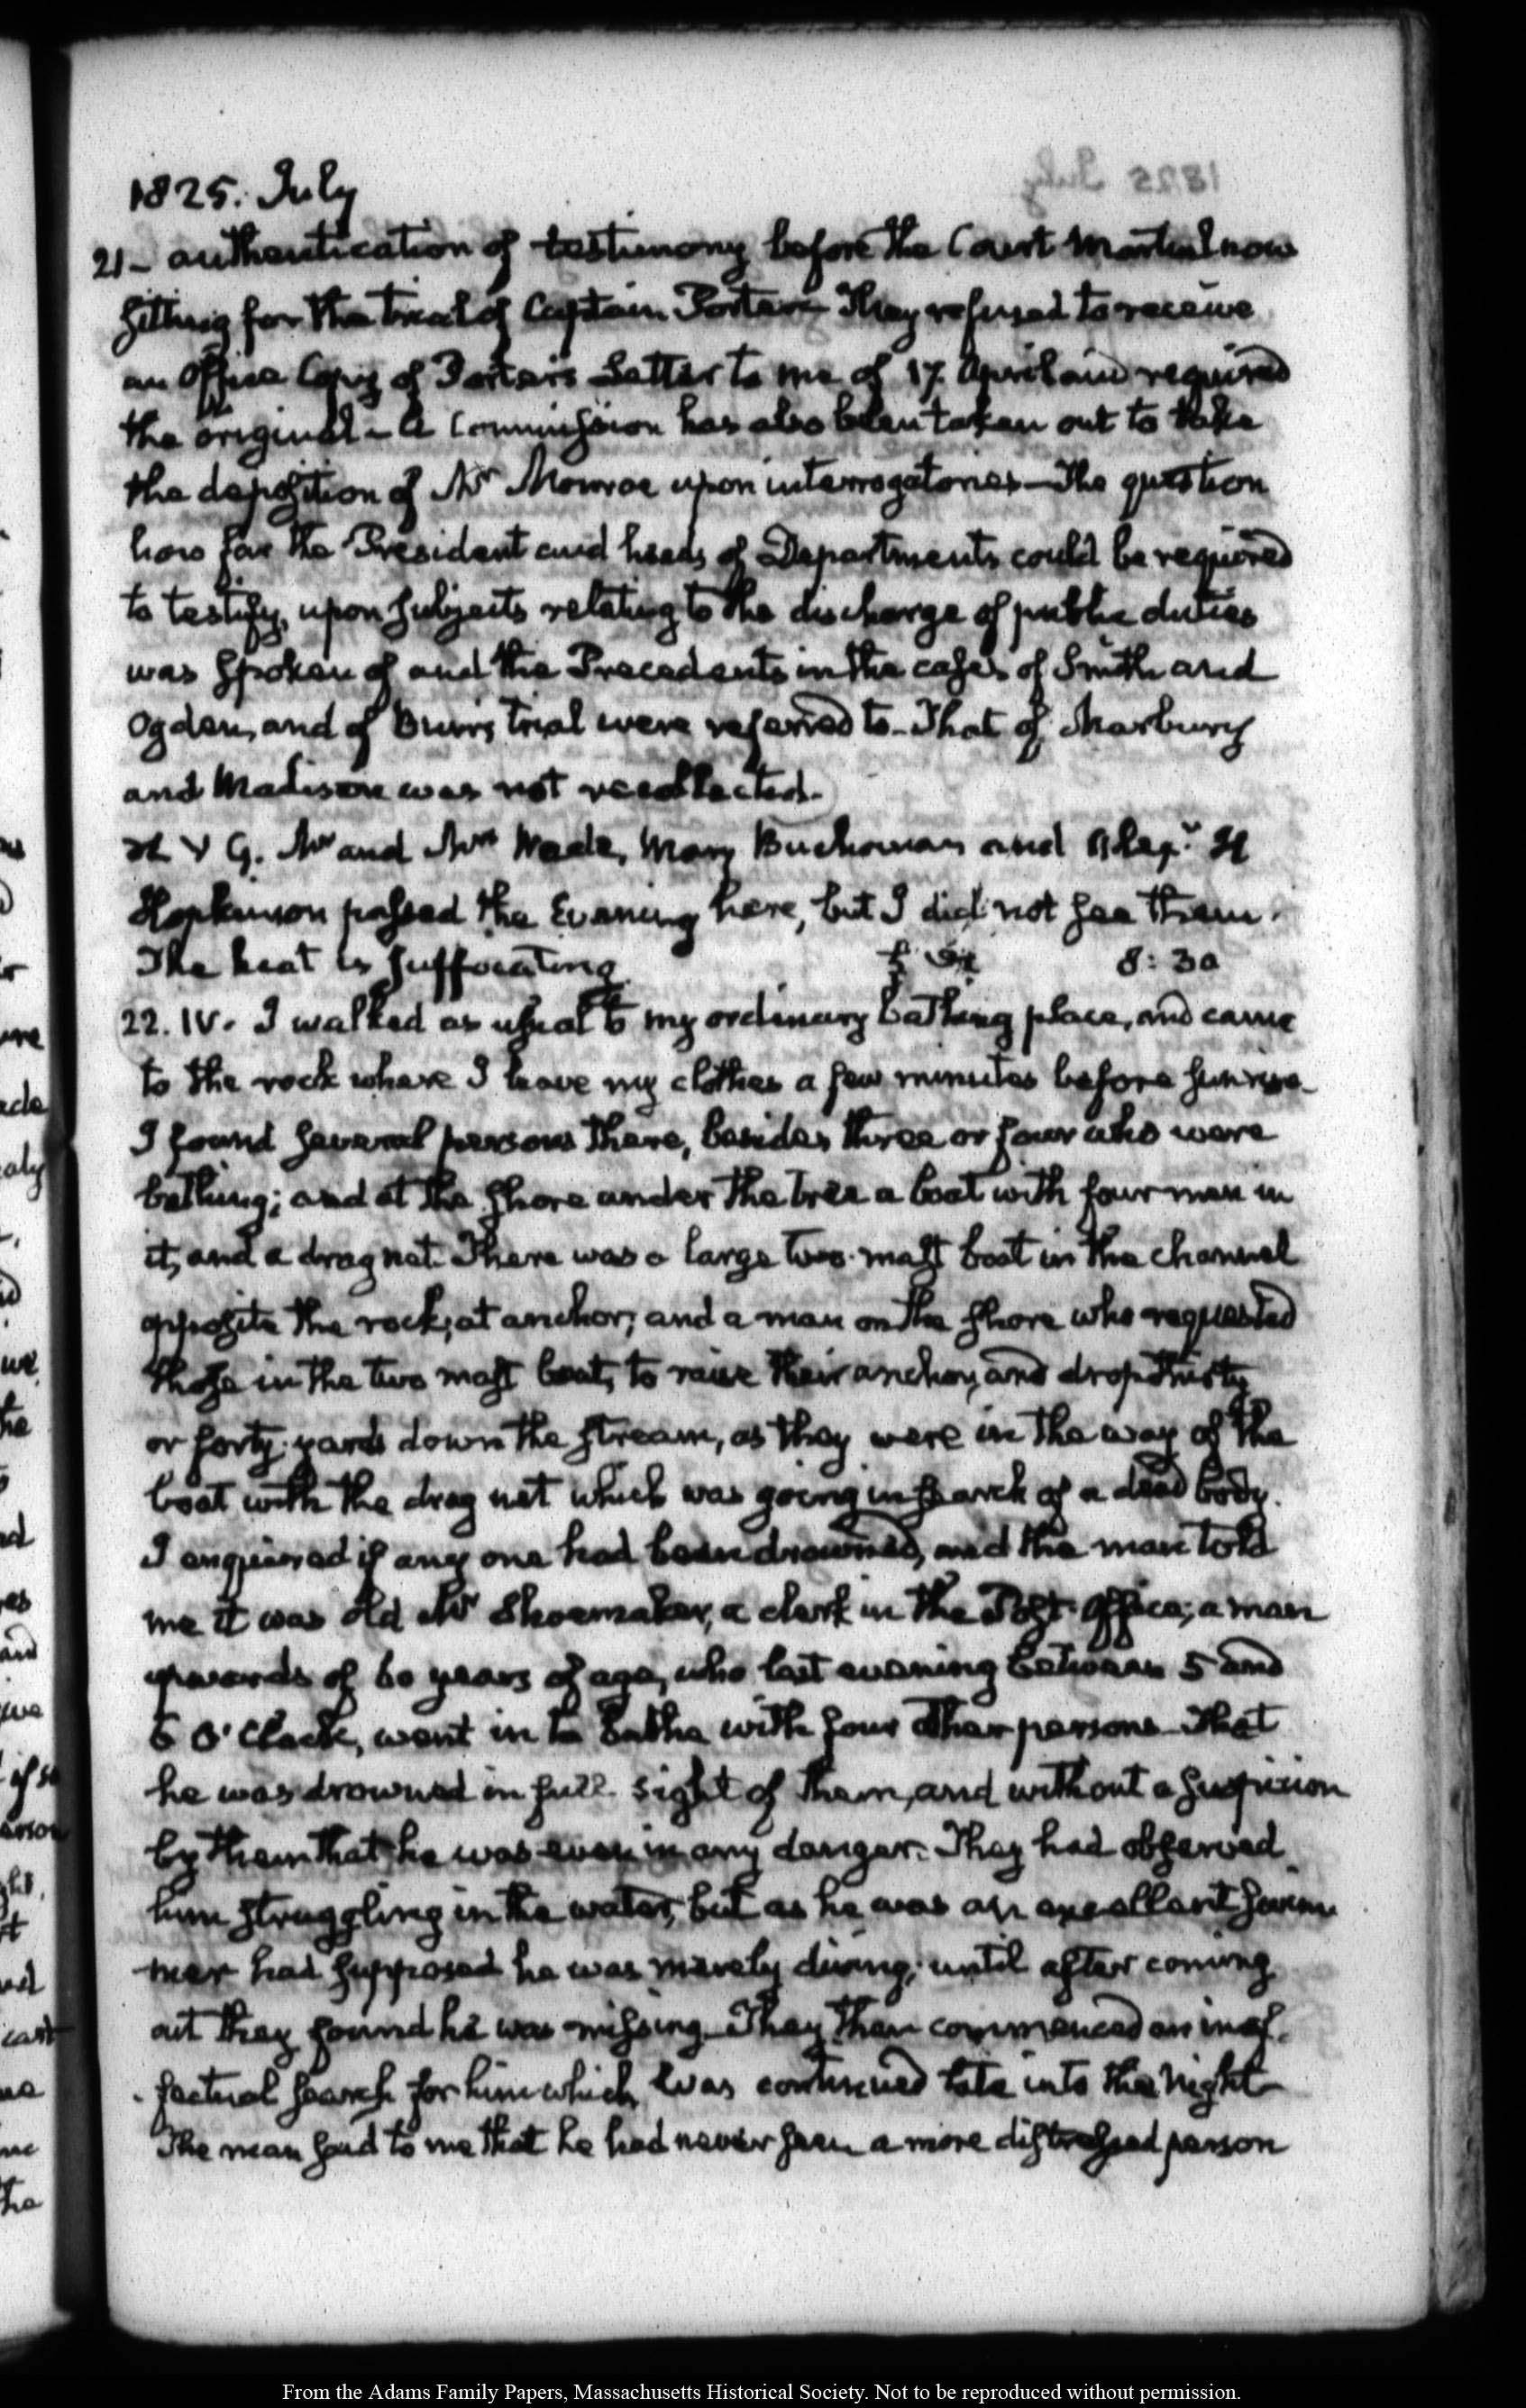 1825. July
21 - authentication of testimony before the Court Martial now
sitting for the trial of Captain Porter - They refused to receive
an Office Copy of Porter's Letter to me of 17 April and required
the original - A Commission has also been taken out to take
the deposition of Mr Monroe upon interrogatories - The question
how far the President and heads of Departments could be required
to testify, upon subjects relating to the discharge of public duties
was spoken of and the Precedents in the cases of Smith and
Ogden, and of Burr's trial were referred to - That of Marbury
and Madison was not recollected.
G. Mr and Mrs Wade, Mary Buchanan and Alexr. H
Hopkinson passed the Evening here, but I did not see them.
The heat is suffocating 8:30
22. IV. I walked as usual to my ordinary bathing place, and came
to the rock where I leave my clothes a few minutes before sunrise -
I found several persons there, besides three or four who were
bathing; and at the shore under the tree a boat with four men in
it, and a drag net. There was a large two-mast boat in the channel
opposite the rock, at anchor; and a man on the shore who requested
those in the two mast boat, to raise their anchor, and drop thirty
or forty yards down the stream, as they were in the way of the
boat with the drag net which was going in search of a dead body.
I enquired if any one had been drowned, and the man told
me it was old Mr Shoemaker, a clerk in the Post-Office; a man
upwards of 60 years of age, who last evening between 5 and
6 O'Clock, went in to bathe with four other persons - That
he was drowned in full sight of them, and without a suspicion
by them that he was even in any danger. They had observed
him struggling in the water, but as he was an excellent swim
mer had supposed he was merely diving, until after coming
out they found he was missing - They then commenced an inef-
-fectual search for him which was continued late into the Night -
The man said to me that he had never seen a more distressed person
From the Adams Family Papers, Massachusetts Historical Society. Not to be reproduced without permission.